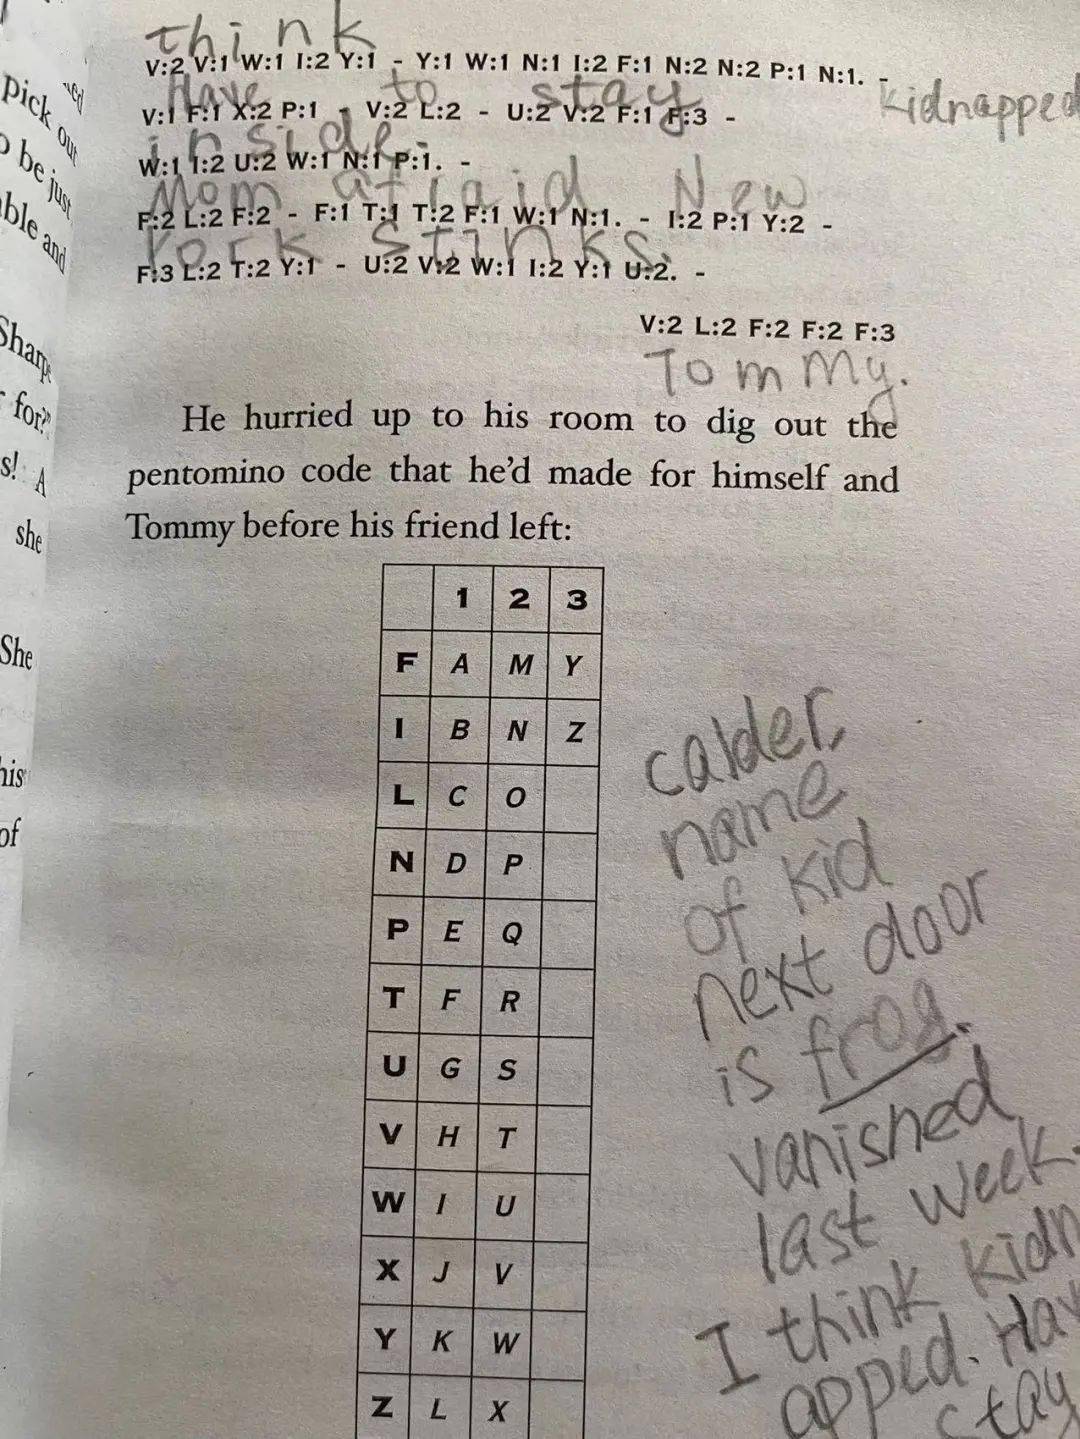 think
V:2 V:1 W:1 I:2 Y:1 - Y:1 W:1 N:1 I:2 F:1 N:2 N:2 P:1 N:1. -
Have to stay kidnapped
V:1 F:1 X:2 P:1 - V:2 L:2 - U:2 V:2 F:1 F:3 -
inside.
W:1 I:2 U:2 W:1 N:1 P:1. -
Mom afraid New
F:2 L:2 F:2 - F:1 T:1 T:2 F:1 W:1 N:1. - I:2 P:1 Y:2 -
York Stinks.
F:3 L:2 T:2 Y:1 - U:2 V:2 W:1 I:2 Y:1 U:2. -
V:2 L:2 F:2 F:2 F:3
Tommy.
He hurried up to his room to dig out the
pentomino code that he'd made for himself and
Tommy before his friend left:
1 2 3
F A M Y
I B N Z
L C O
N D P
P E Q
T F R
U G S
V H T
W I U
X J V
Y K W
Z L X
calder,
name
of kid
next door
is frog.
vanished
last week.
I think kidn
apped. Hav
stay
Pick out
be just
able and
Sharpe
for?"
s! A
she
She
his
of